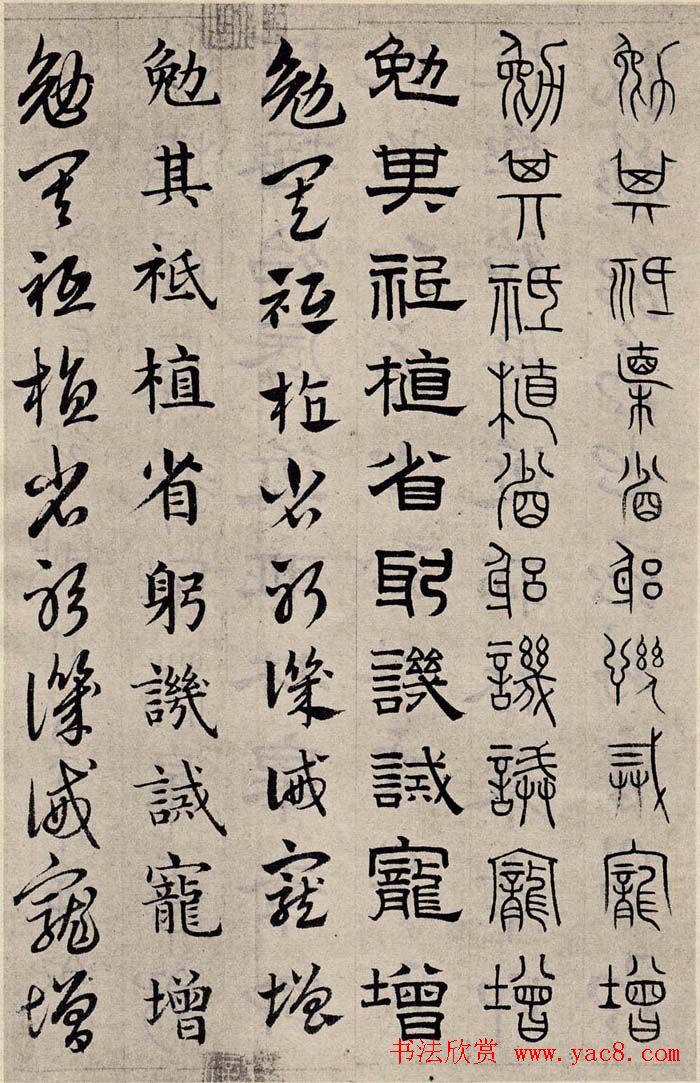 勉其祗植省躬譏誡寵增
勉其祗植省躬譏誡寵增
勉其祗植省躬譏誡寵增
勉其祗植省躬譏誡寵增
勉其祗植省躬譏誡寵增
勉其祗植省躬譏誡寵增
书法欣赏 www.yac8.com